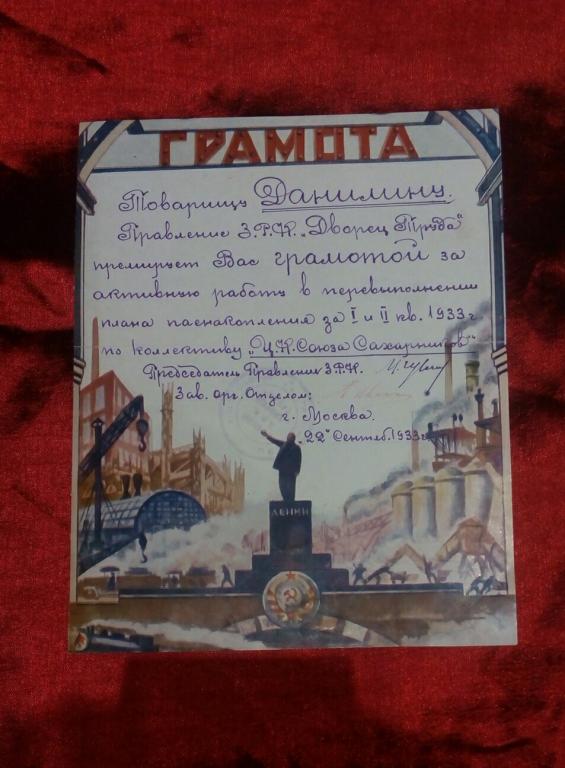 ГРАМОТА
Товарищу Данилину.
Правление З.Р.К. „Дворец Труда"
премирует Вас грамотой за
активную работу в перевыполнении
плана паенакопления за I и II кв. 1933 г.
по коллективу „Ц.К. Союза Сахарников"
Председатель Правления З.Р.К.
Зав. Орг. Отделом:
г. Москва.
„22" Сентяб. 1933 г.
ЛЕНИН